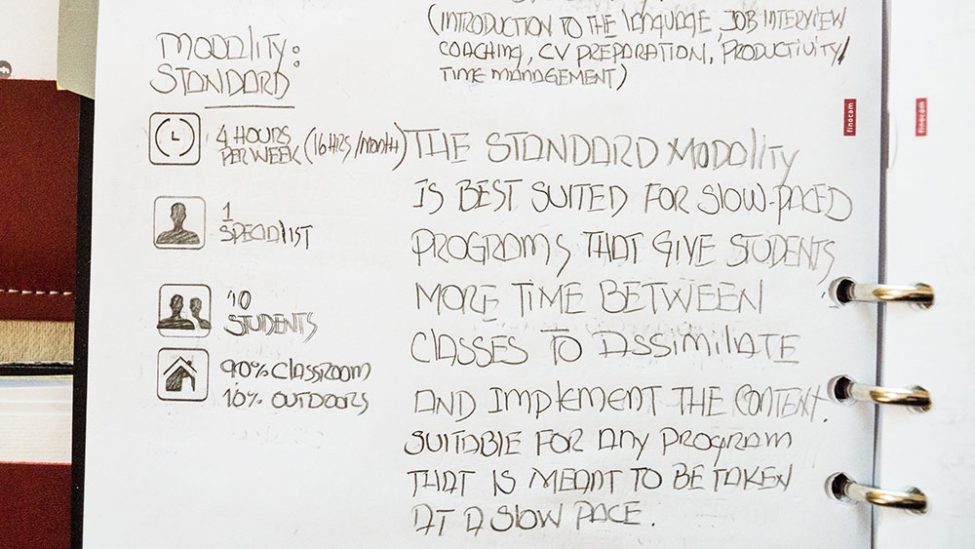 (INTRODUCTION TO THE language, JOB INTERVIEW
COACHING, CV PREPARATION, PRODUCTIVITY/
TIME MANAGEMENT)
MODALITY:
STANDARD
4 HOURS
PER WEEK (16 HRS/month)
1
SPECIALIST
10
STUDENTS
90% CLASSROOM
10% OUTDOORS
THE STANDARD MODALITY
IS BEST SUITED FOR SLOW-PACED
PROGRAMS THAT GIVE STUDENTS
MORE TIME BETWEEN
CLASSES TO ASSIMILATE
AND IMPLEMENT THE CONTENT.
SUITABLE FOR ANY PROGRAM
THAT IS MEANT TO BE TAKEN
AT A SLOW PACE.
finocam
finocam